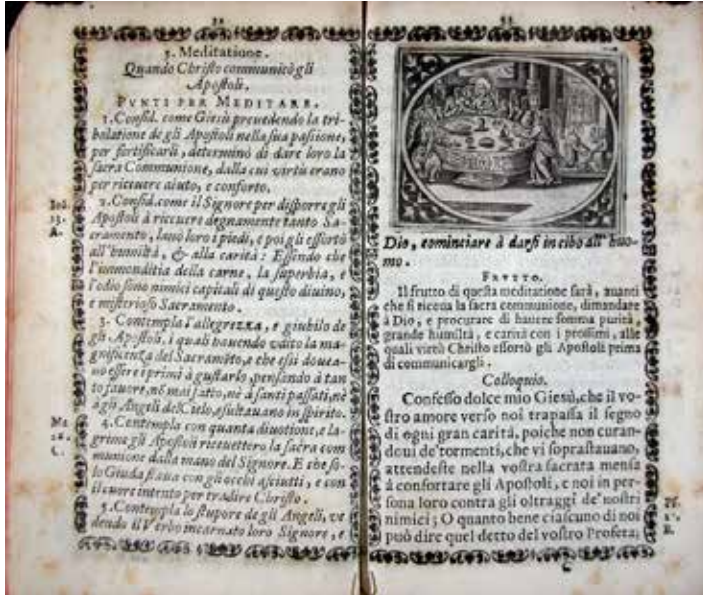 32
5. Meditatione.
Quando Christo communicò gli
Apostoli.
PVNTI PER MEDITARE.
1. Consid. come Giesù preuedendo la tri-
bolatione de gli Apostoli nella sua passione,
per fortificarli, determinò di dare loro la
sacra Communione, dalla cui virtù erano
per riceuere aiuto, e conforto.
Ioã.
13.
A.
2. Consid. come il Signore per disporre gli
Apostoli à riceuere degnamente tanto Sa-
cramento, lauò loro i piedi, e poi gli essortò
all'humiltà, & alla carità: Essendo che
l'immonditia della carne, la superbia, e
l'odio sono nimici capitali di questo diuino,
e misterioso Sacramento.
3. Contempla l'allegrezza, e giubilo de
gli Apostoli, i quali hauendo vdito la ma-
gnificenza del Sacramẽto, e che essi doueano
essere i primi à gustarlo, pensando à tan
to fauore, nõ mai fatto, nè à santi passati, nè
à gli Angeli del Cielo, esultauano in spirito.
Ma
26.
C.
4. Contempla con quanta diuotione, e la-
grime gli Apostoli riceuettero la sacra com-
munione dalla mano del Signore. E che so-
lo Giuda staua con gli occhi asciutti, e con
il cuore intento per tradire Christo.
5. Contempla lo stupore de gli Angeli, ve
dendo il Verbo incarnato loro Signore, e
33
Dio, cominciare à darsi in cibo all'huo-
mo.
FRVTTO.
Il frutto di questa meditatione sarà, inanti
che si riceua la sacra communione, dimandare
à Dio, e procurare di hauere somma purità,
grande humiltà, e carità con i prossimi, alle
quali virtù Christo essortò gli Apostoli prima
di communicargli.
Colloquio.
Confesso dolce mio Giesù, che il vo-
stro amore verso noi trapassa il segno
di ogni gran carità, poiche non curan-
doui de' tormenti, che vi soprastauano,
attendeste nella vostra sacrata mensa
à confortare gli Apostoli, e noi in per-
sona loro contra gli oltraggi de' nostri
nimici; O quanto bene ciascuno di noi
può dire quel detto del vostro Profeta;
C